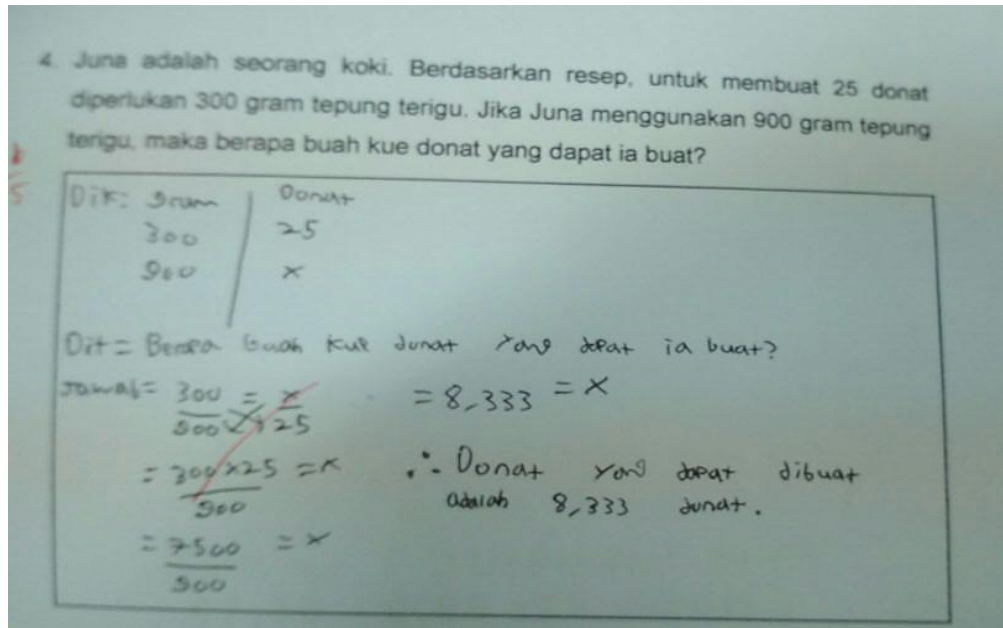 4. Juna adalah seorang koki. Berdasarkan resep, untuk membuat 25 donat
diperlukan 300 gram tepung terigu. Jika Juna menggunakan 900 gram tepung
terigu, maka berapa buah kue donat yang dapat ia buat?
5
Dik: gram | Donat
300 | 25
900 | x
Dit = Berapa buah kue donat yang dapat ia buat?
Jawab = 300/900 = x/25
= 300x25/900 = x
= 7500/900 = x
= 8,333 = x
∴ Donat yang dapat dibuat
adalah 8,333 donat.